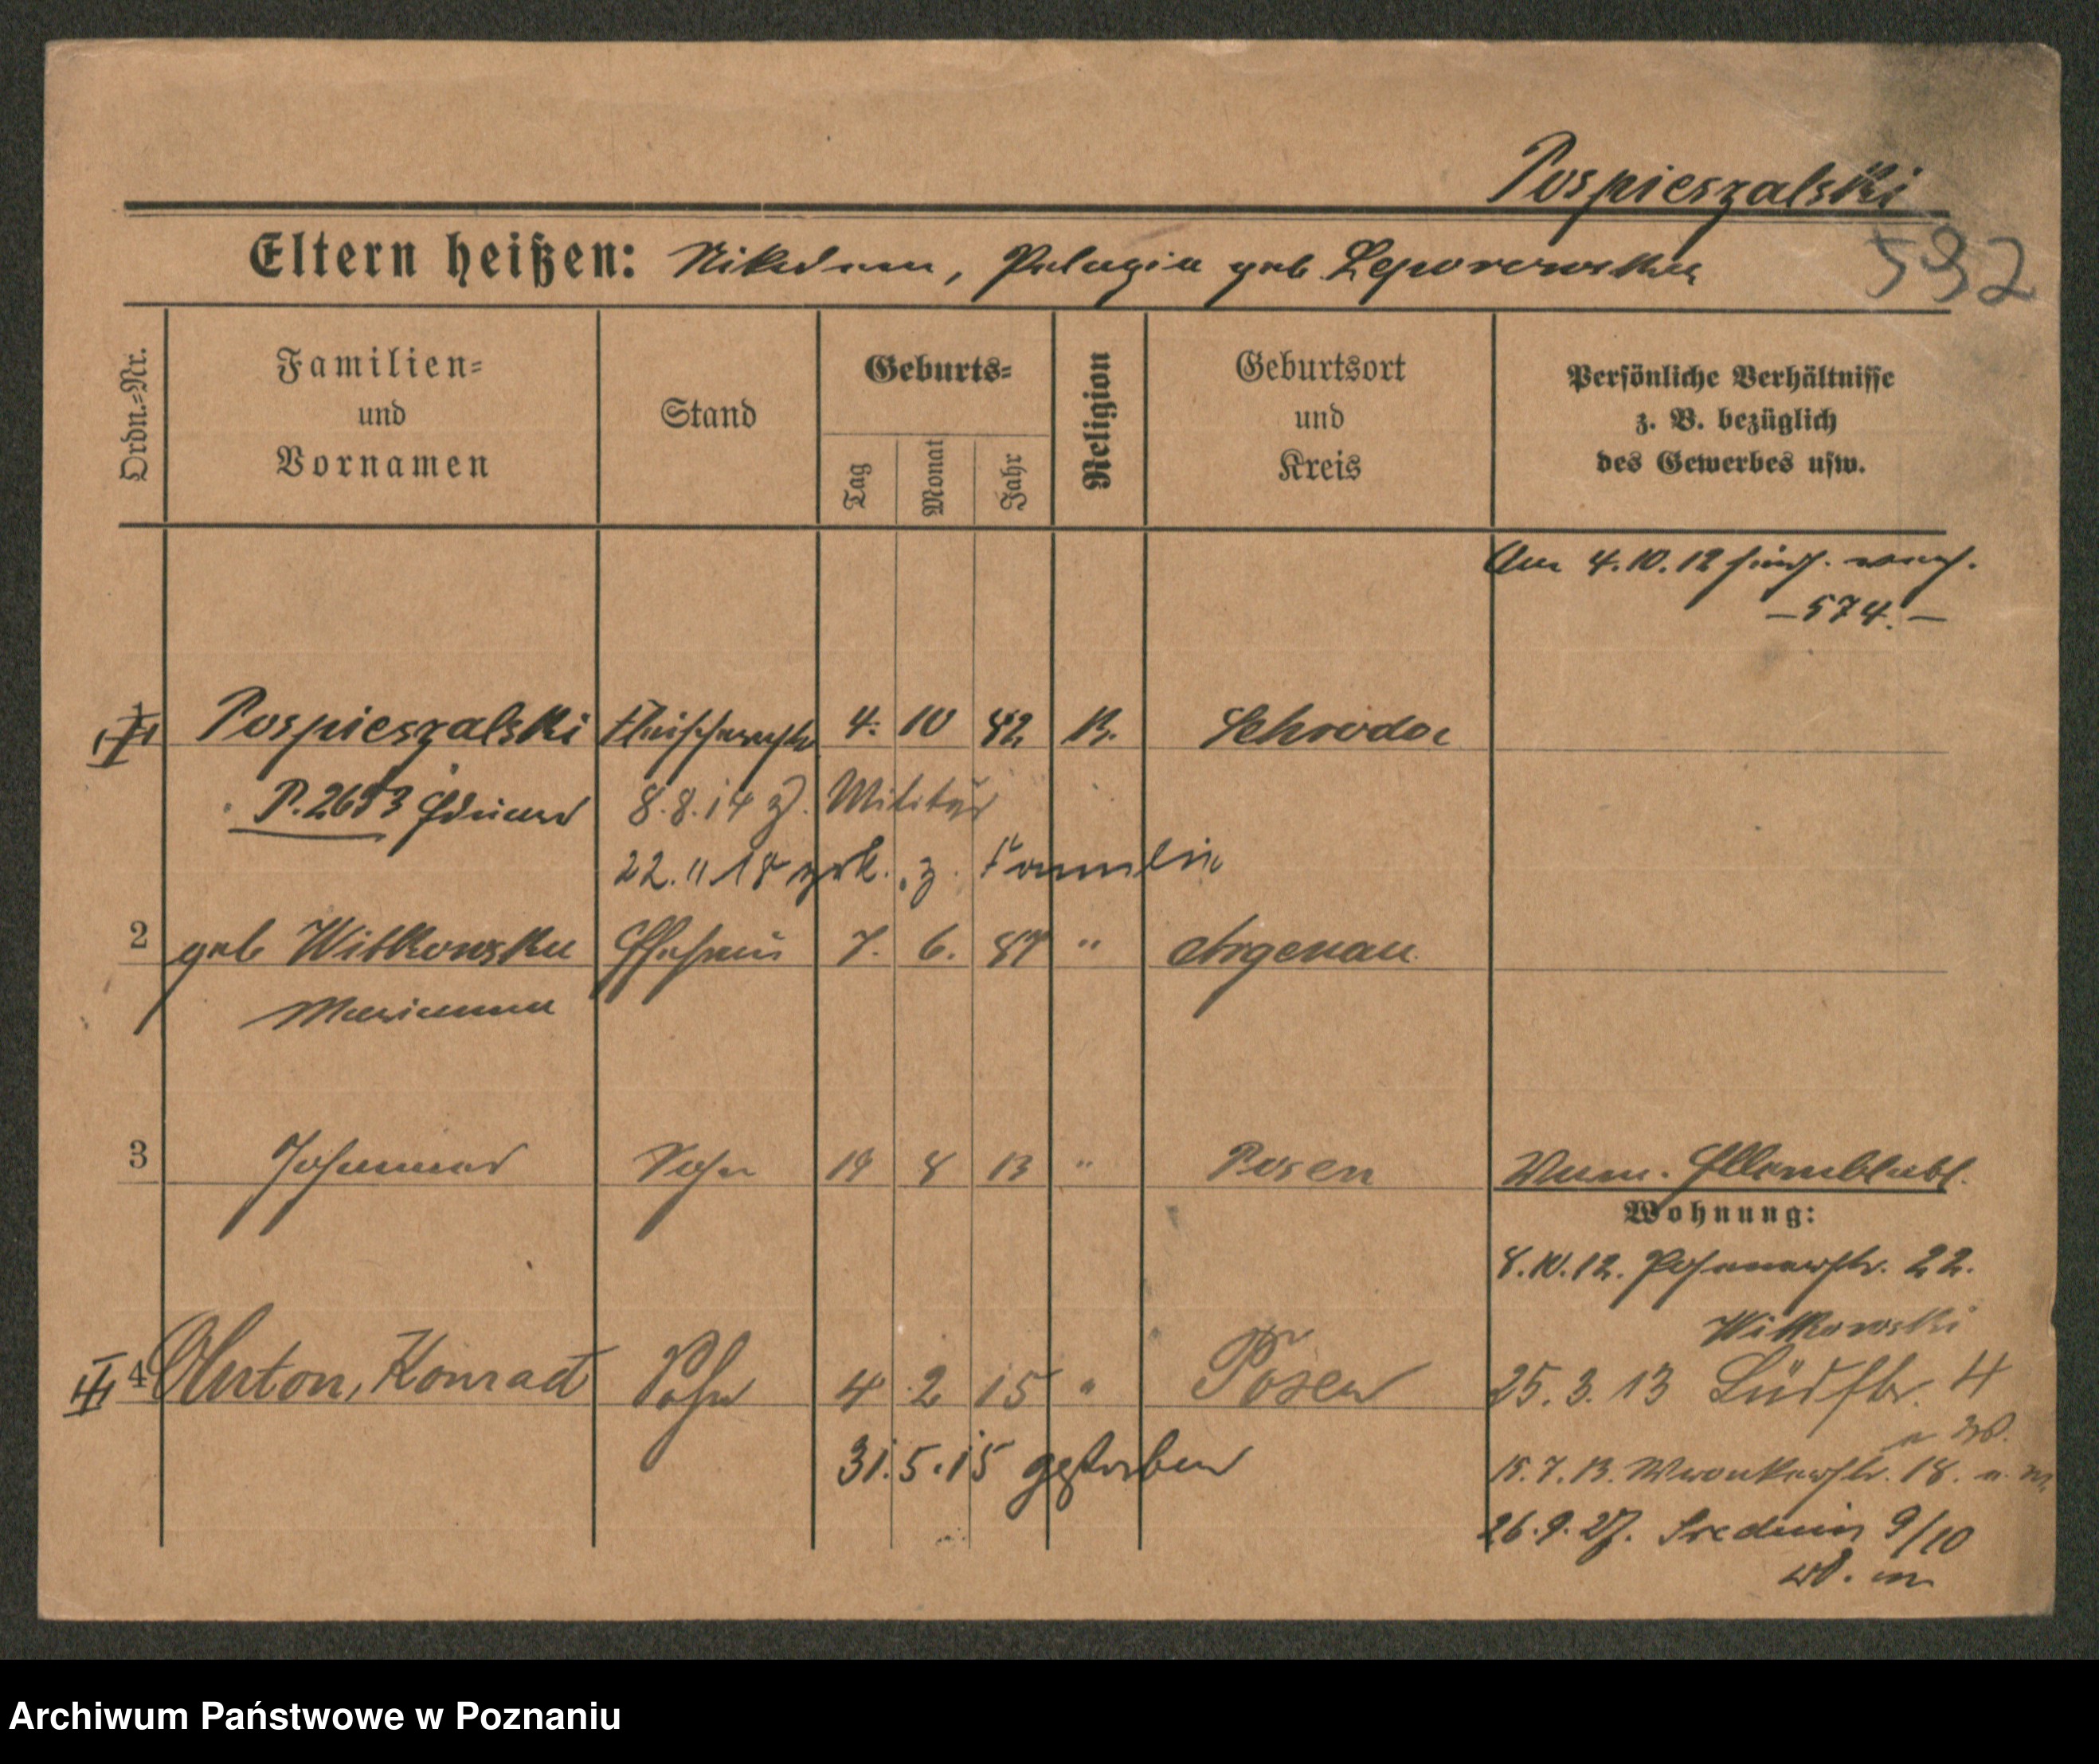 Pospieszalski
592
Eltern heißen: Nikodem, Pelagia geb Leporowska
Ordn.-Nr.
Familien-
und
Vornamen
Stand
Geburts-
Tag
Monat
Jahr
Religion
Geburtsort
und
Kreis
Persönliche Verhältnisse
z. B. bezüglich
des Gewerbes usw.
Am 4.10.12
–574.–
Pospieszalski
4. 10 82 K. Schroda
P.2653 Eduard
8.8.14 z. Militär
22.11.18 zrk. z. Familie
2 geb Witkowska Ehefrau 7. 6. 87 " Argenau
Marianna
3 Johannes Sohn 19 8 13 " Posen
Wohnung:
8.10.12. 22.
Witkowski
III 4 Anton, Konrad Sohn 4 2 15 " Posen
25.3.13 Südstr. 4
31.5.15 gestorben
15.7.13. Wronkerstr. 18.
26.9.27. 9/10